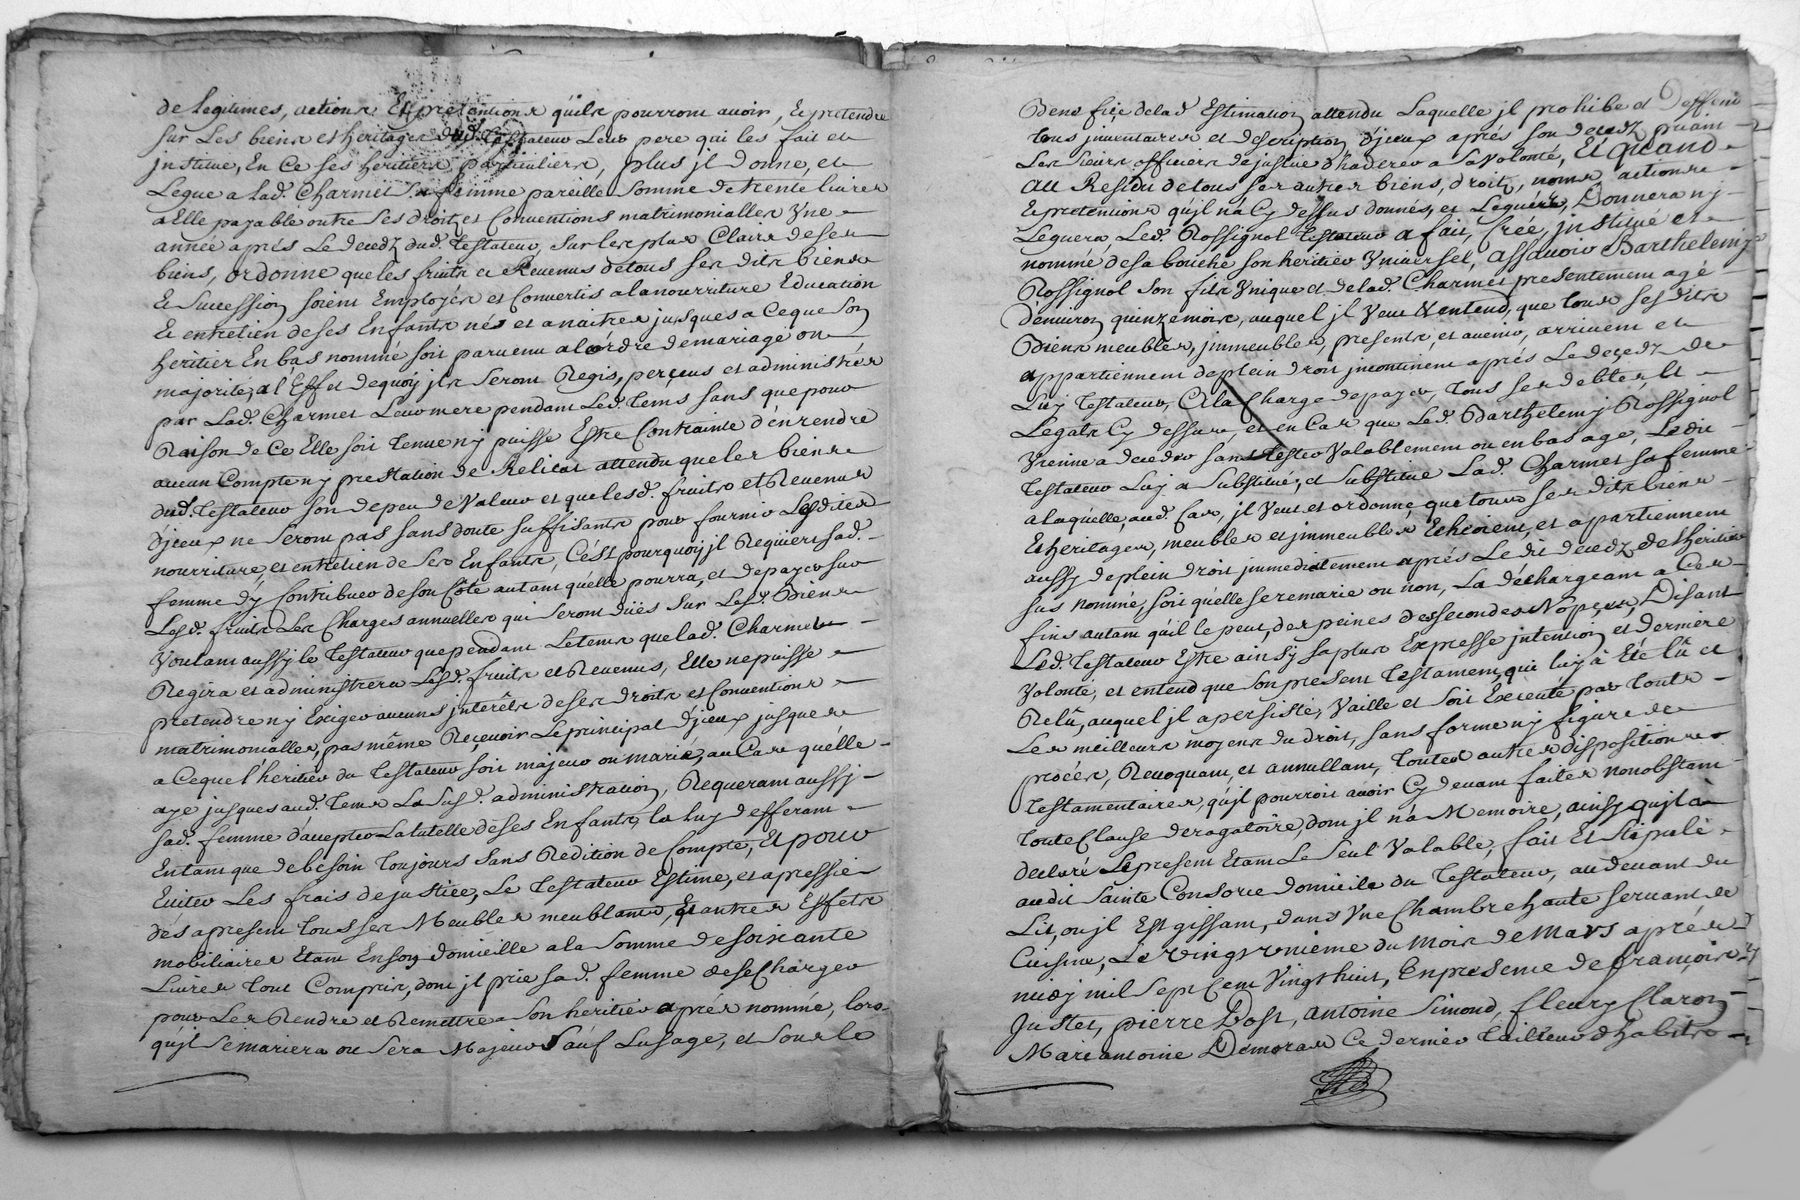 de legitimes, actions Et pretentions quils pourront avoir, Et pretendre
sur Les biens et heritages dud. Testateur Leur pere qui les fait et
jnstitue, En ce ses heritiers particuliers, plus jl donne, et
Legue a lad. Charmet sa femme pareille somme de trente livres
a Elle payable outre ses droits et Conventions matrimonialles Vne
année aprés Le decedz dud. Testateur, sur les plus Clairs de ses
biens, ordonne que les fruits et Revenus de tous ses dits biens
Et Succession soient Employés et Convertis a la nourriture Education
Et entretien de ses Enfants nés et a naitres jusques a Ceque son
heritier En bas nommé soit parvenu a l'ordre de mariage ou
majorité, a l'Effet dequoy jls seront Regis, perçeus et administrés
par Lad. Charmet Leur mere pendant Led. tems sans que pour
Raison de Ce Elle soit tenue ny puisse Estre Contrainte d'en rendre
aucun Compte ny prestation de Relicat attendu que les biens
dud. Testateur son de peu de Valeur et que lesd. fruits et Revenus
d'jceux ne seront pas sans doute suffisants pour fournir Lesdites
nourriture et entretien de ses Enfants, C'est pourquoy jl Requiert sad.
femme d'y Contribuer de son Côte autant quelle pourra, et de payer sur
Lesd. fruits Les Charges annuelles qui seront düës sur Lesd. Biens
Voulant aussy le Testateur que pendant Le tems que lad. Charmet
Regira et administrera Lesd. fruits et Revenus, Elle ne puisse
pretendre ny Exiger aucuns jnterêts de ses droits et Conventions
matrimonialles, pas même Reçevoir Le principal d'jceux jusques
a Ceque l'heritier du Testateur soit majeur ou marié, au Cas quelle
aye jusques aud. tems La susd. administration, Requerant aussy
sad. femme d'accepter La tutelle de ses Enfants, la luy defferant
Entant que de besoin toujours sans Redition de Compte, Et pour
Eviter Les frais de justice, Le Testateur Estime, et apressie
dés apresent tous ses Meubles meublants, Et autres Effets
mobiliaires Etant En son domicille a la somme de soixante
Livres tout Compris, dont jl prie sad. femme de se Charger
pour Les Rendre et Remettre a son heritier aprés nommé, lors
qu'jl se mariera ou sera Majeur Sauf Lusage, et sous le
Benefice de lad. Estimation attendu Laquelle jl prohibe et Deffend
tous jnventaires et description d'jceux aprés son decedz priant
Les sieurs officiers de justice d'hadherer a sa Volonté, Et quand
au Residu de tous ses autres biens, droits, noms actions
Et pretentions qu'jl n'a Cy dessus donnés, et Legués, Donnera ny
Leguera, Led. Rossignol Testateur a fait, Créé, jnstitué et
nommé de sa bouche son heritier Vniversel, assavoir Barthelemy
Rossignol son fils Vnique et de lad. Charmet presentement agé
d'environ quinze mois, auquel jl Veut & entend, que tous ses dits
Biens meubles, jmmeubles, presents, et avenir, arrivent et
appartiennent de plein droit jncontinent aprés Le decedz de
Luy Testateur, a la Charge de payer, tous ses debtes et
Legats Cy dessus, et en Cas que Led. Barthelemy Rossignol
Vienne a deceder sans tester Valablement ou en bas age, Ledit
Testateur Luy a Substitué, et substitue Lad. Charmet sa femme
a laquelle, aud. Cas, jl Veut et ordonne que tous ses dits biens
Et heritages, meubles et jmmeubles Echeoient, et apartiennent
aussy de plein droit jmmediatement aprés Le dit decedz de l'heritier
sus nommé, soit quelle se remarie ou non, La déchargeant a Ces
fins autant qu'jl le peut, des peines des secondes Nopçes, Disant
Led. Testateur Estre ainsy sa plus Expresse jntention et derniere
Volonté, et entend que son present Testament, qui luy à Eté lû et
Relû, auquel jl a persisté, Vaille et soit Executé par touts
Les meilleurs moyens du droit, sans forme ny figure de
procés, Revoquant, et annullant, toutes autres dispositions
Testamentaires, qu'jl pourroit avoir Cy devant faites nonobstant
toute Clause derogatoire, dont jl n'a Memoire, ainsy qu'jl à
declaré Le present Etant Le seul Valable, fait Et stipulé
audit Sainte Consorce domicile du Testateur, au devant du
Lit, ou jl Est gissant, dans Vne Chambre haute servant de
Cuisine, Le vingt vnième du mois de Mars aprés
midy mil sept Cent Vingt huit, En presence de françois
Justet, pierre Dost, antoine Simond, fleury Claron
Marc antoine Demoras Ce dernier tailleur d'habits